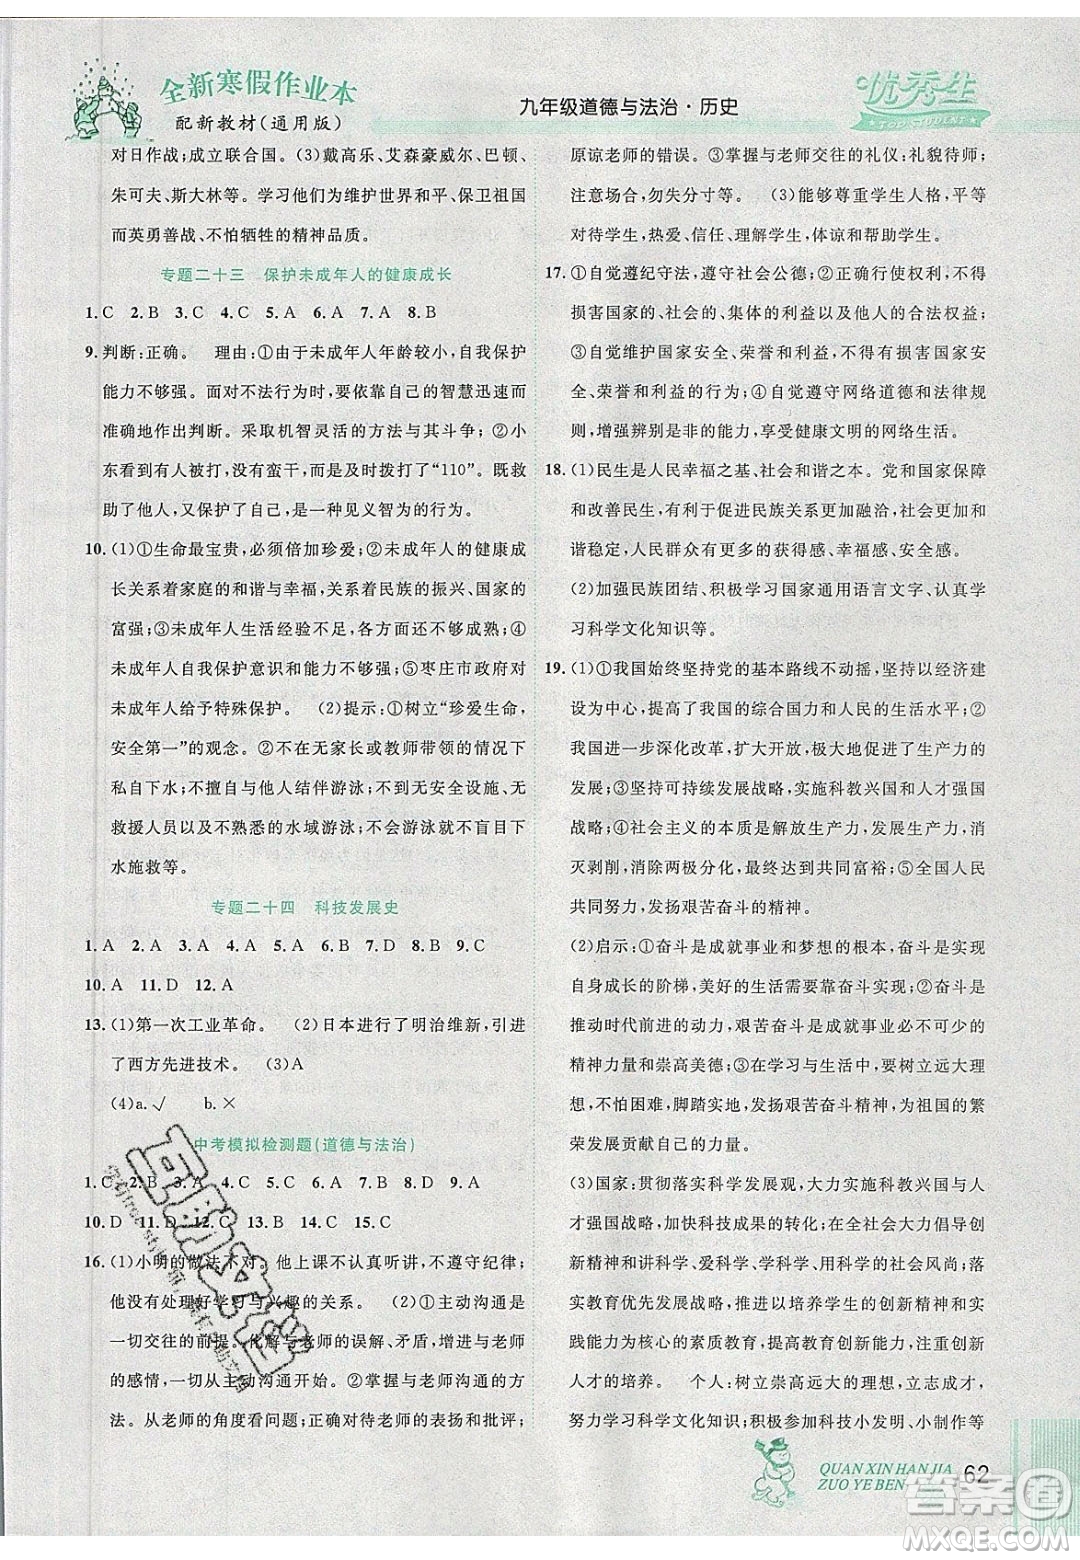 全新寒假作业本
配新教材(通用版)
九年级道德与法治·历史
优秀生
TOP STUDENT
对日作战;成立联合国。(3)戴高乐、艾森豪威尔、巴顿、
朱可夫、斯大林等。学习他们为维护世界和平,保卫祖国
而英勇善战、不怕牺牲的精神品质。
专题二十三 保护未成年人的健康成长
1.C 2.B 3.C 4.C 5.A 6.A 7.A 8.B
9.判断:正确。 理由:①由于未成年人年龄较小,自我保护
能力不够强。面对不法行为时,要依靠自己的智慧迅速而
准确地作出判断。采取机智灵活的方法与其斗争;②小
东看到有人被打,没有蛮干,而是及时拨打了“110”。既救
助了他人,又保护了自己,是一种见义智为的行为。
10.(1)①生命最宝贵,必须倍加珍爱;②未成年人的健康成
长关系着家庭的和谐与幸福,关系着民族的振兴、国家的
富强;③未成年人生活经验不足,不够成熟;④
未成年人自我保护意识和能力不够强;⑤枣庄市政府对
未成年人给予特殊保护。 (2)提示:①树立“珍爱生命,
安全第一”的观念。②不在无家长或教师带领的情况下
私自下水;不擅自与他人结伴游泳;不到无安全设施、无
救援人员以及不熟悉的水域游泳;不会游泳就不盲目下
水施救等。
专题二十四 科技发展史
1.A 2.A 3.A 4.A 5.A 6.D 7.D 8.B 9.C
10.A 11.D 12.A
13.(1)第一次工业革命。 (2)日本进行了明治维新,引进
了西方先进技术。 (3)A
(4)a.√ b.×
中考模拟检测题(道德与法治)
1.C 2.B 3.C 4.A 5.A 6.C 7.D 8.C 9.A
10.D 11.D 12.C 13.C 14.C 15.C
16.(1)小明的做法不对。他上课不认真听讲,不遵守纪律;
他没有处理好学习与兴趣的关系。 (2)①主动沟通是
一切交往的前提。化解与老师的误解、矛盾,增进与老师
的感情,一切从主动沟通开始。②掌握与老师沟通的方
法。从老师的角度看问题;正确对待老师的表扬和批评;
原谅老师的错误。③掌握与老师交往的礼仪:礼貌待师;
注意场合,勿失分寸等。 (3)能够尊重学生人格,平等
对待学生,热爱、信任、理解学生,体谅和帮助学生。
17.①自觉遵纪守法,遵守社会公德;②正确行使权利,不得
损害国家的、社会的、集体的利益和他人的合法权益;
③自觉维护国家安全、荣誉和利益,不得有损害国家安
全、荣誉和利益的行为;④自觉遵守网络道德和法律规
则,增强辨别是非的能力,享受健康文明的网络生活。
18.(1)民生是人民幸福之基、社会和谐之本。党和国家保障
和改善民生,有利于促进民族关系和谐发展,促进社会和
谐稳定,人民群众获得更多的获得感、幸福感、安全感。
(2)加强民族团结、积极学习国家通用语言文字、认真学
习科学文化知识等。
19.(1)①我国始终坚持党的基本路线不动摇,坚持以经济建
设为中心,提高了我国的综合国力和人民的生活水平;②
我国进一步深化改革,扩大开放,极大地促进了生产力的
发展;③坚持可持续发展战略,实施科教兴国和人才强国
战略;④社会主义的本质是解放生产力,发展生产力,消
灭剥削,消除两极分化,最终达到共同富裕;⑤全国人民
共同努力,发扬艰苦奋斗的精神。
(2)启示:①奋斗是成就事业和梦想的根本,奋斗是实现
自身成长的阶梯,美好的生活需要奋斗实现;②奋斗是
推动时代前进的动力,艰苦奋斗是成就事业必不可少的
精神力量和崇高美德;③在学习与生活中,要树立远大理
想,不怕困难,脚踏实地,发扬艰苦奋斗精神,为国家的繁
荣发展贡献自己的力量。
(3)国家:贯彻落实科学发展观,大力实施科教兴国与人
才强国战略,加快科技成果的转化;在全社会大力倡导创
新精神和讲科学、爱科学、学科学、用科学的社会风尚;落
实教育优先发展战略,实施以培养学生的创新精神和实
践能力为核心的素质教育,提高教育创新能力,注重创新
人才的培养。 个人:树立崇高远大的理想,立志成才,
努力学习科学文化知识;积极参加科技小发明、小制作等
QUAN XIN HAN JIA
ZUO YE BEN
62
答案圈
MXQE.COM